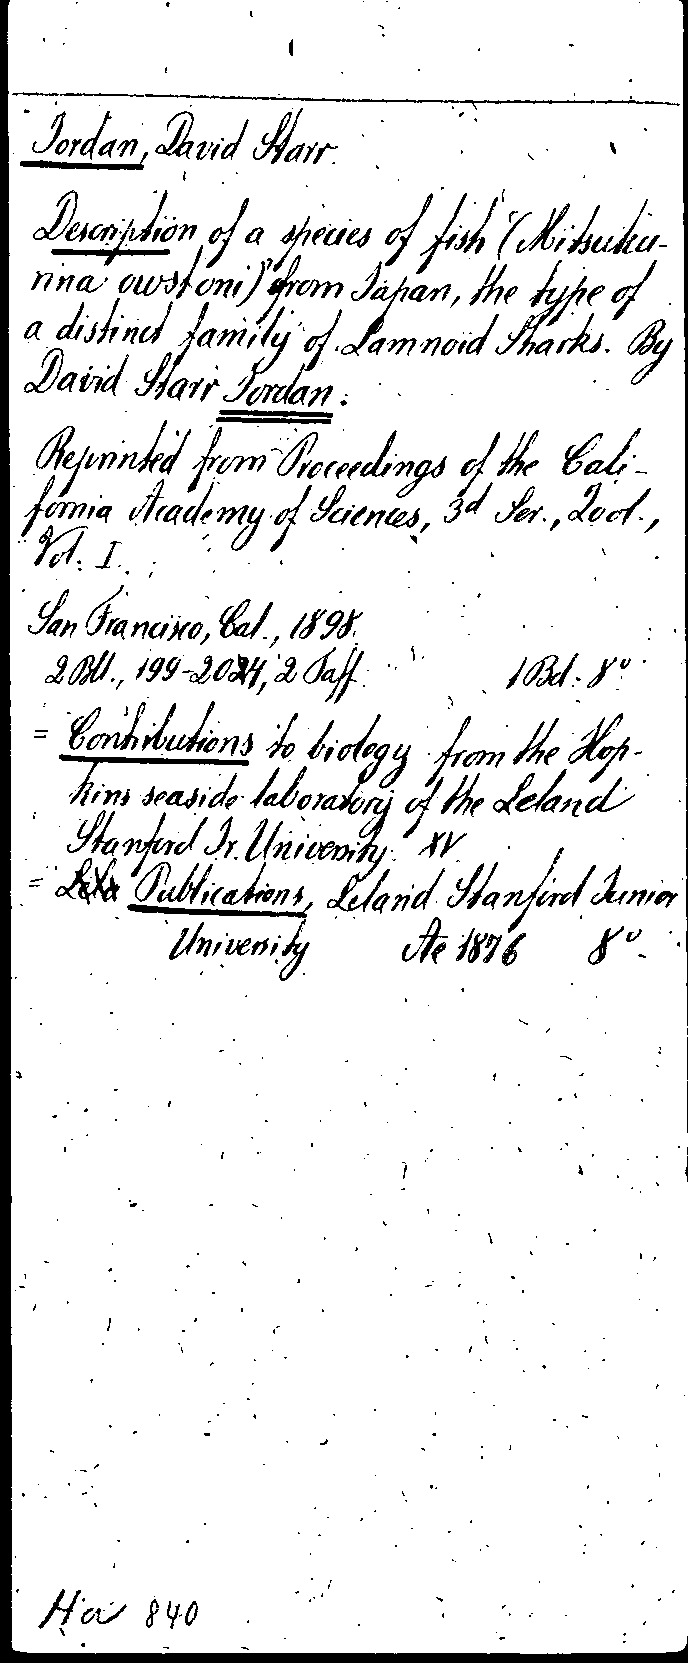 Jordan, David Starr.
Description of a species of fish (Mitsuku-
rina owstoni) from Japan, the type of
a distinct family of Lamnoid Sharks. By
David Starr Jordan.
Reprinted from Proceedings of the Cali-
fornia Academy of Sciences, 3d Ser., Zool.,
Vol. I.
San Francisco, Cal., 1898.
2 Bll., 199-204, 2 Taff. 1 Bd. 8°
= Contributions to biology from the Hop-
kins seaside laboratory of the Leland
Stanford Jr. University. XV
= Publications, Leland Stanford Junior
University Ae 1876 8°
Ha 840